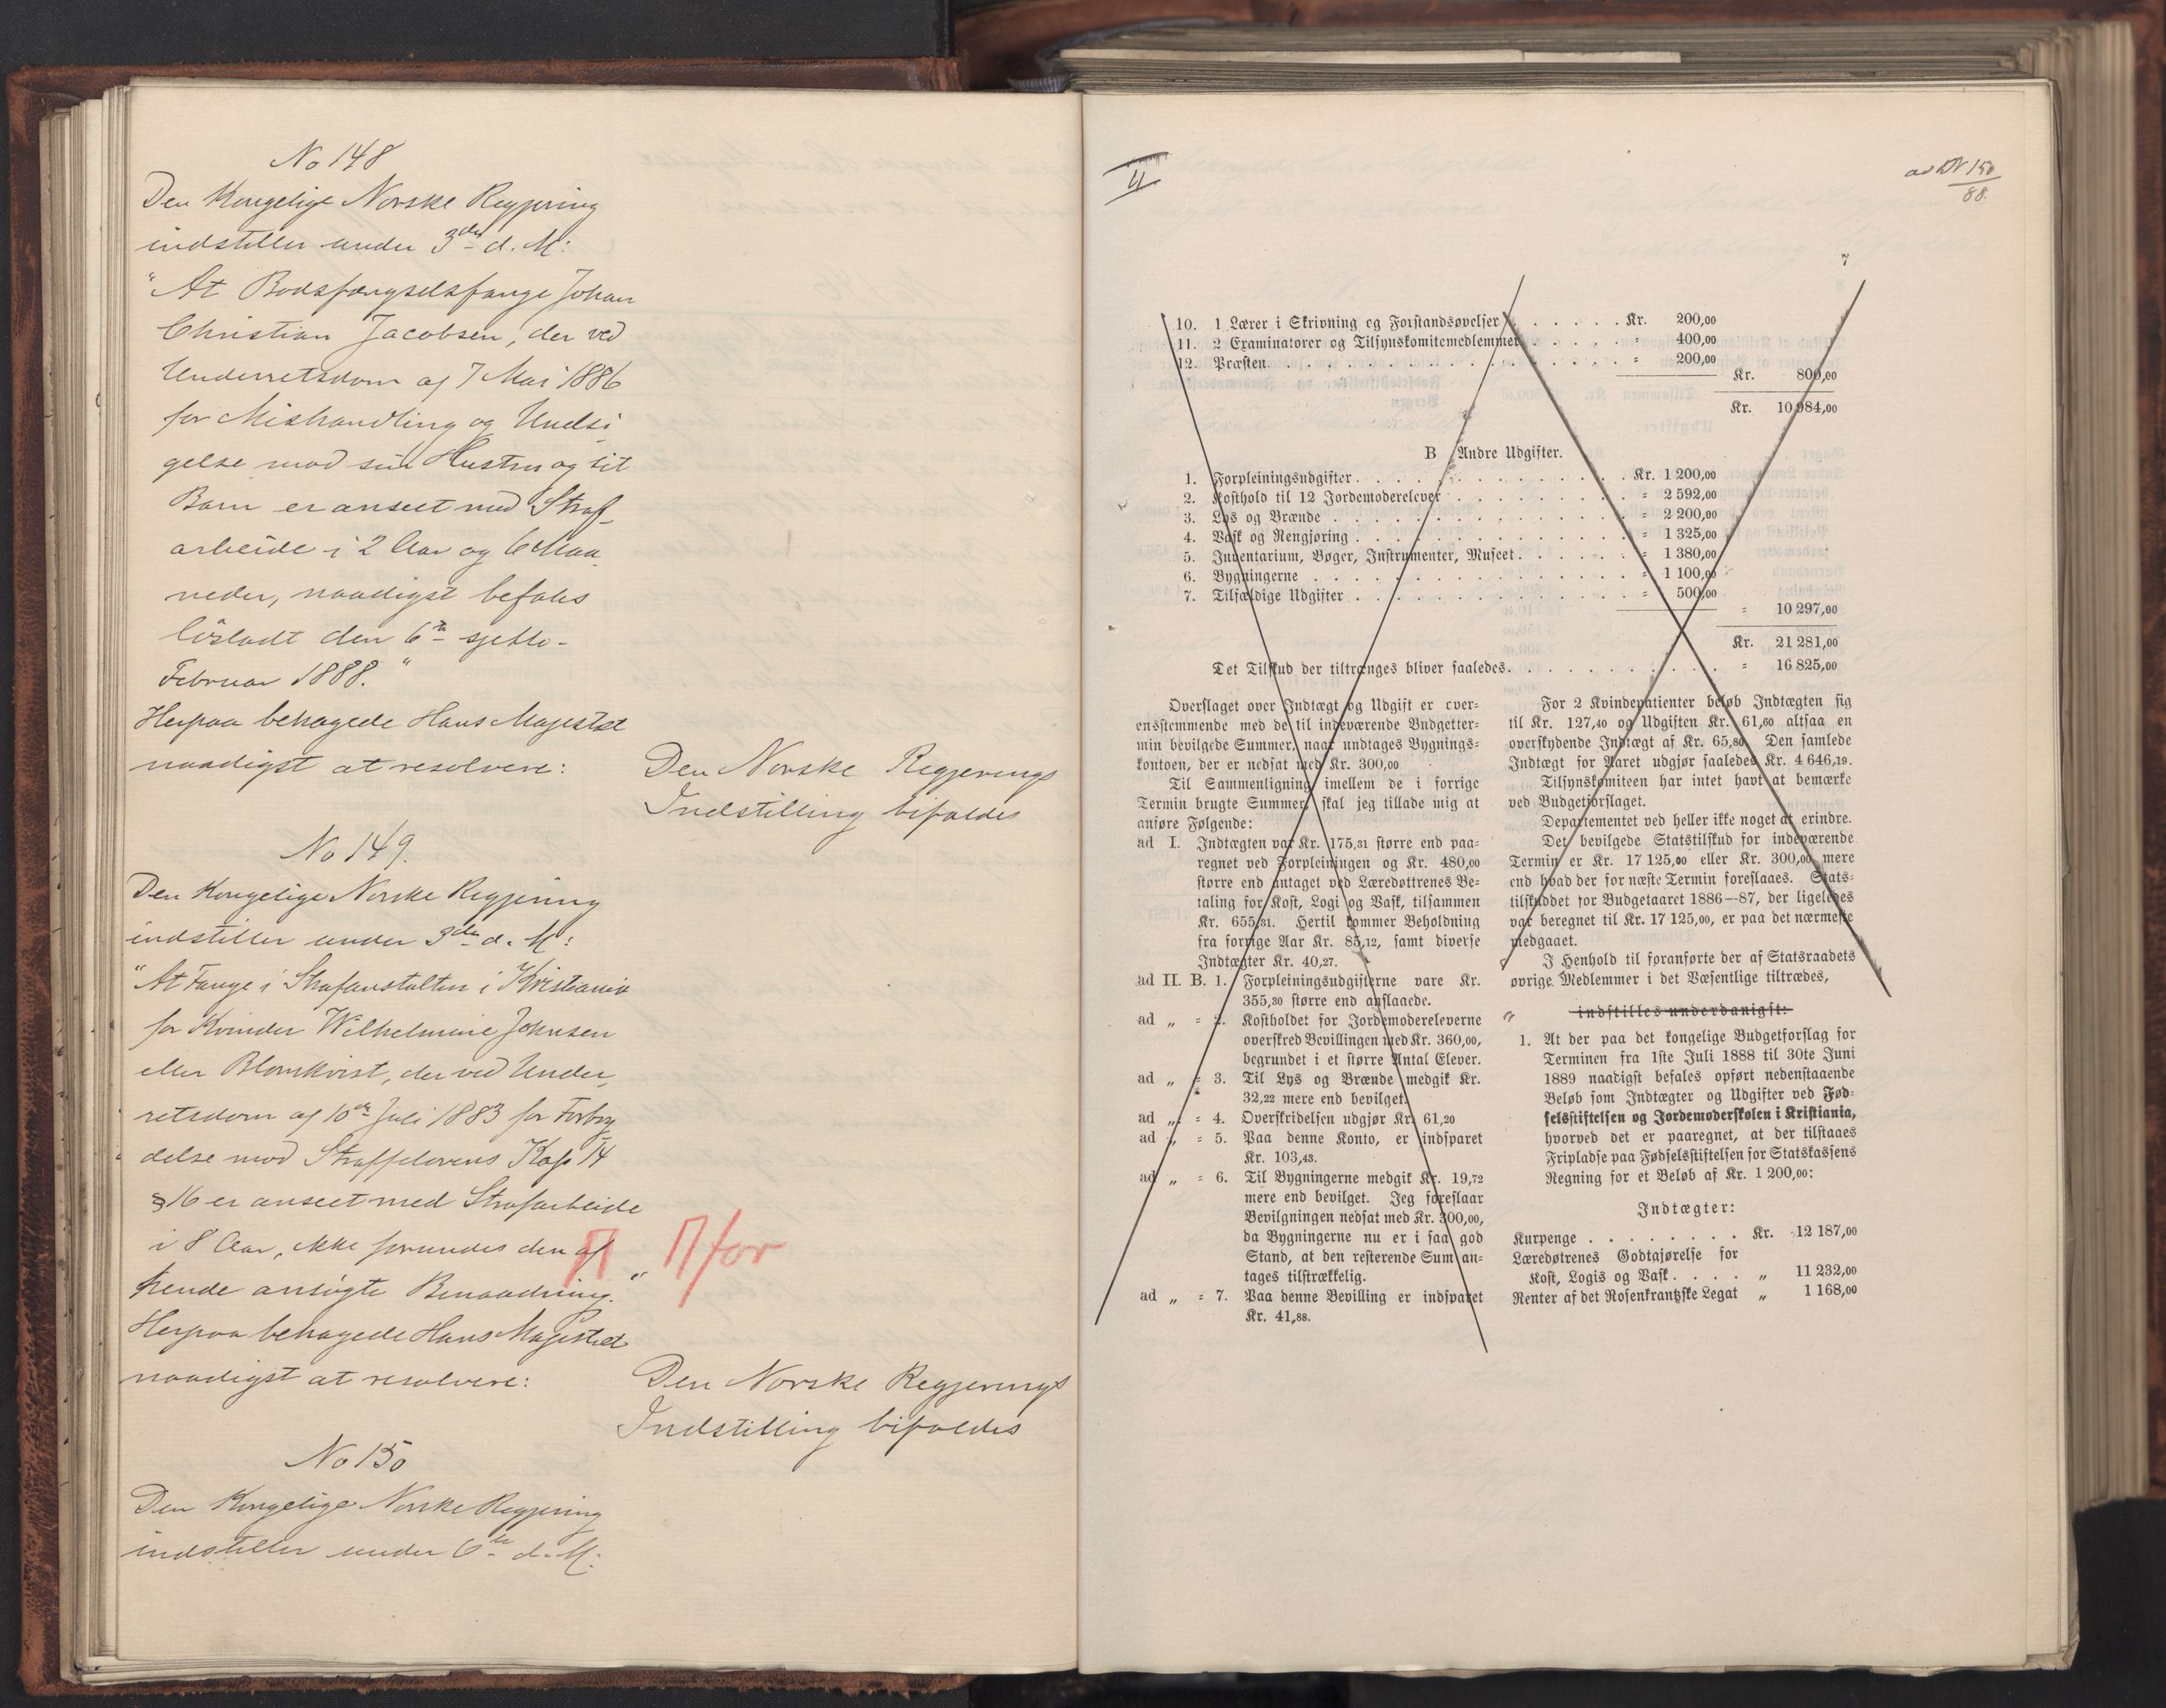 No 148
Den Kongelige Norske Regjering
indstiller under 3die d. M:
"At Bodsfængselsfange Johan
Christian Jacobsen, der ved
Underretsdom af 7 Mai 1886
for Mishandling og Undsi-
gelse mod sin Hustru og sit
Barn er anseet med Straf-
arbeide i 2 Aar og 6 Maa-
neder, naadigst befales
løsladt den 6te sjette
Februar 1888."
Herpaa behagede Hans Majestæt
naadigst at resolvere:
Den Norske Regjerings
Indstilling bifaldes
No 149.
Den Kongelige Norske Regjering
indstiller under 3die d. M:
"At Fange i Strafanstalten i Kristiania
for Kvinder Wilhelmine Johnsen
eller Blomkvist, der ved Under-
retsdom af 10de Juli 1883 for Forbry-
delse mod Straffelovens Kap 14
§ 16 er anseet med Strafarbeide
i 8 Aar, ikke forundes den af
hende ansøgte Benaadning."
Π Π for
Herpaa behagede Hans Majestæt
naadigst at resolvere:
Den Norske Regjerings
Indstilling bifaldes
No 150
Den Kongelige Norske Regjering
indstiller under 6te d. M:
II
ad DN 150
88.
7
10. 1 Lærer i Skrivning og Forstandsøvelser . . . . . Kr. 200,00
11. 2 Examinatorer og Tilsynskomitemedlemmer . . . . . = 400,00
12. Præsten . . . . . = 200,00
Kr. 800,00
Kr. 10 984,00
B Andre Udgifter.
1. Forpleiningsudgifter . . . . . Kr. 1 200,00
2. Kosthold til 12 Jordemoderelever . . . . . = 2 592,00
3. Lys og Brænde . . . . . = 2 200,00
4. Vask og Rengjøring . . . . . = 1 325,00
5. Inventarium, Bøger, Instrumenter, Museet . . . . . = 1 380,00
6. Bygningerne . . . . . = 1 100,00
7. Tilfældige Udgifter . . . . . = 500,00
= 10 297,00
Kr. 21 281,00
Det Tilskud der tiltrænges bliver saaledes . . . . . = 16 825,00
Overslaget over Indtægt og Udgift er over-
ensstemmende med de til indeværende Budgetter-
min bevilgede Summer, naar undtages Bygnings-
kontoen, der er nedsat med Kr. 300,00
Til Sammenligning imellem de i forrige
Termin brugte Summer, skal jeg tillade mig at
anføre Følgende:
ad I. Indtægten var Kr. 175,31 større end paa-
regnet ved Forpleiningen og Kr. 480,00
større end antaget ved Læredøttrenes Be-
taling for Kost, Logi og Vask, tilsammen
Kr. 655,31. Hertil kommer Beholdning
fra forrige Aar Kr. 85,12, samt diverse
Indtægter Kr. 40,27.
ad II. B. 1. Forpleiningsudgifterne vare Kr.
355,30 større end anslaaede.
ad „ = 2. Kostholdet for Jordemodereleverne
overskred Bevillingen med Kr. 360,00,
begrundet i et større Antal Elever.
ad „ = 3. Til Lys og Brænde medgik Kr.
32,22 mere end bevilget.
ad „ = 4. Overskridelsen udgjør Kr. 61,20
ad „ = 5. Paa denne Konto, er indsparet
Kr. 103,43.
ad „ = 6. Til Bygningerne medgik Kr. 19,72
mere end bevilget. Jeg foreslaar
Bevilgningen nedsat med Kr. 300,00,
da Bygningerne nu er i saa god
Stand, at den resterende Sum an-
tages tilstrækkelig.
ad „ = 7. Paa denne Bevilling er indsparet
Kr. 41,88.
For 2 Kvindepatienter beløb Indtægten sig
til Kr. 127,40 og Udgiften Kr. 61,60 altsaa en
overskydende Indtægt af Kr. 65,80. Den samlede
Indtægt for Aaret udgjør saaledes Kr. 4 646,19.
Tilsynskomiteen har intet havt at bemærke
ved Budgetforslaget.
Departementet ved heller ikke noget at erindre.
Det bevilgede Statstilskud for indeværende
Termin er Kr. 17 125,00 eller Kr. 300,00 mere
end hvad der for næste Termin foreslaaes. Stats-
tilskuddet for Budgetaaret 1886—87, der ligeledes
var beregnet til Kr. 17 125,00, er paa det nærmeste
medgaaet.
I Henhold til foranførte der af Statsraadets
øvrige Medlemmer i det Væsentlige tiltrædes,
indstilles underdanigst:
" 1. At der paa det kongelige Budgetforslag for
Terminen fra 1ste Juli 1888 til 30te Juni
1889 naadigst befales opført nedenstaaende
Beløb som Indtægter og Udgifter ved Fød-
selsstiftelsen og Jordemoderskolen i Kristiania,
hvorved det er paaregnet, at der tilstaaes
Fripladse paa Fødselsstiftelsen for Statskassens
Regning for et Beløb af Kr. 1 200,00:
Indtægter:
Kurpenge . . . . . Kr. 12 187,00
Læredøtrenes Godtgjørelse for
Kost, Logis og Vask . . . . „ 11 232,00
Renter af det Rosenkrantzske Legat „ 1 168,00